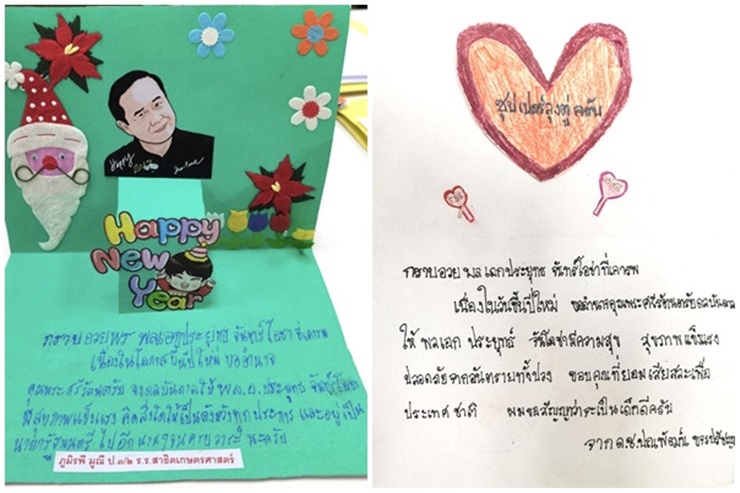 Happy
2017
Happy
New
Year
กราบอวยพร พลเอกประยุทธ จันทร์โอชา ที่เคารพ
เนื่องในโอกาสขึ้นปีใหม่ ขออำนาจ
คุณพระศรีรัตนตรัย จงดลบันดาลให้ พล.อ.ประยุทธ จันทร์โอชา
มีสุขภาพแข็งแรง คิดสิ่งใดให้เป็นดังหวังทุกประการ และอยู่เป็น
นายกรัฐมนตรี ไปอีกนานๆจนครบวาระ นะครับ
ภูมิรพี มูณี ป.๓/๒ ร.ร.สาธิตเกษตรศาสตร์
ซุปเปอร์ลุงตู่ครับ
กราบอวย พลเอกประยุทธ จันทร์โอชาที่เคารพ
เนื่องในวันขึ้นปีใหม่ ขออำนาจคุณพระศรีรัตนตรัยดลบันดาล
ให้ พลเอก ประยุทธ์ จันโอชามีความสุข สุขภาพแข็งแรง
ปลอดภัยจากอันตรายทั้งปวง ขอบคุณที่ยอมเสียสละเพื่อ
ประเทศชาติ ผมขอสัญญาว่าจะเป็นเด็กดีครับ
จาก ด.ช.